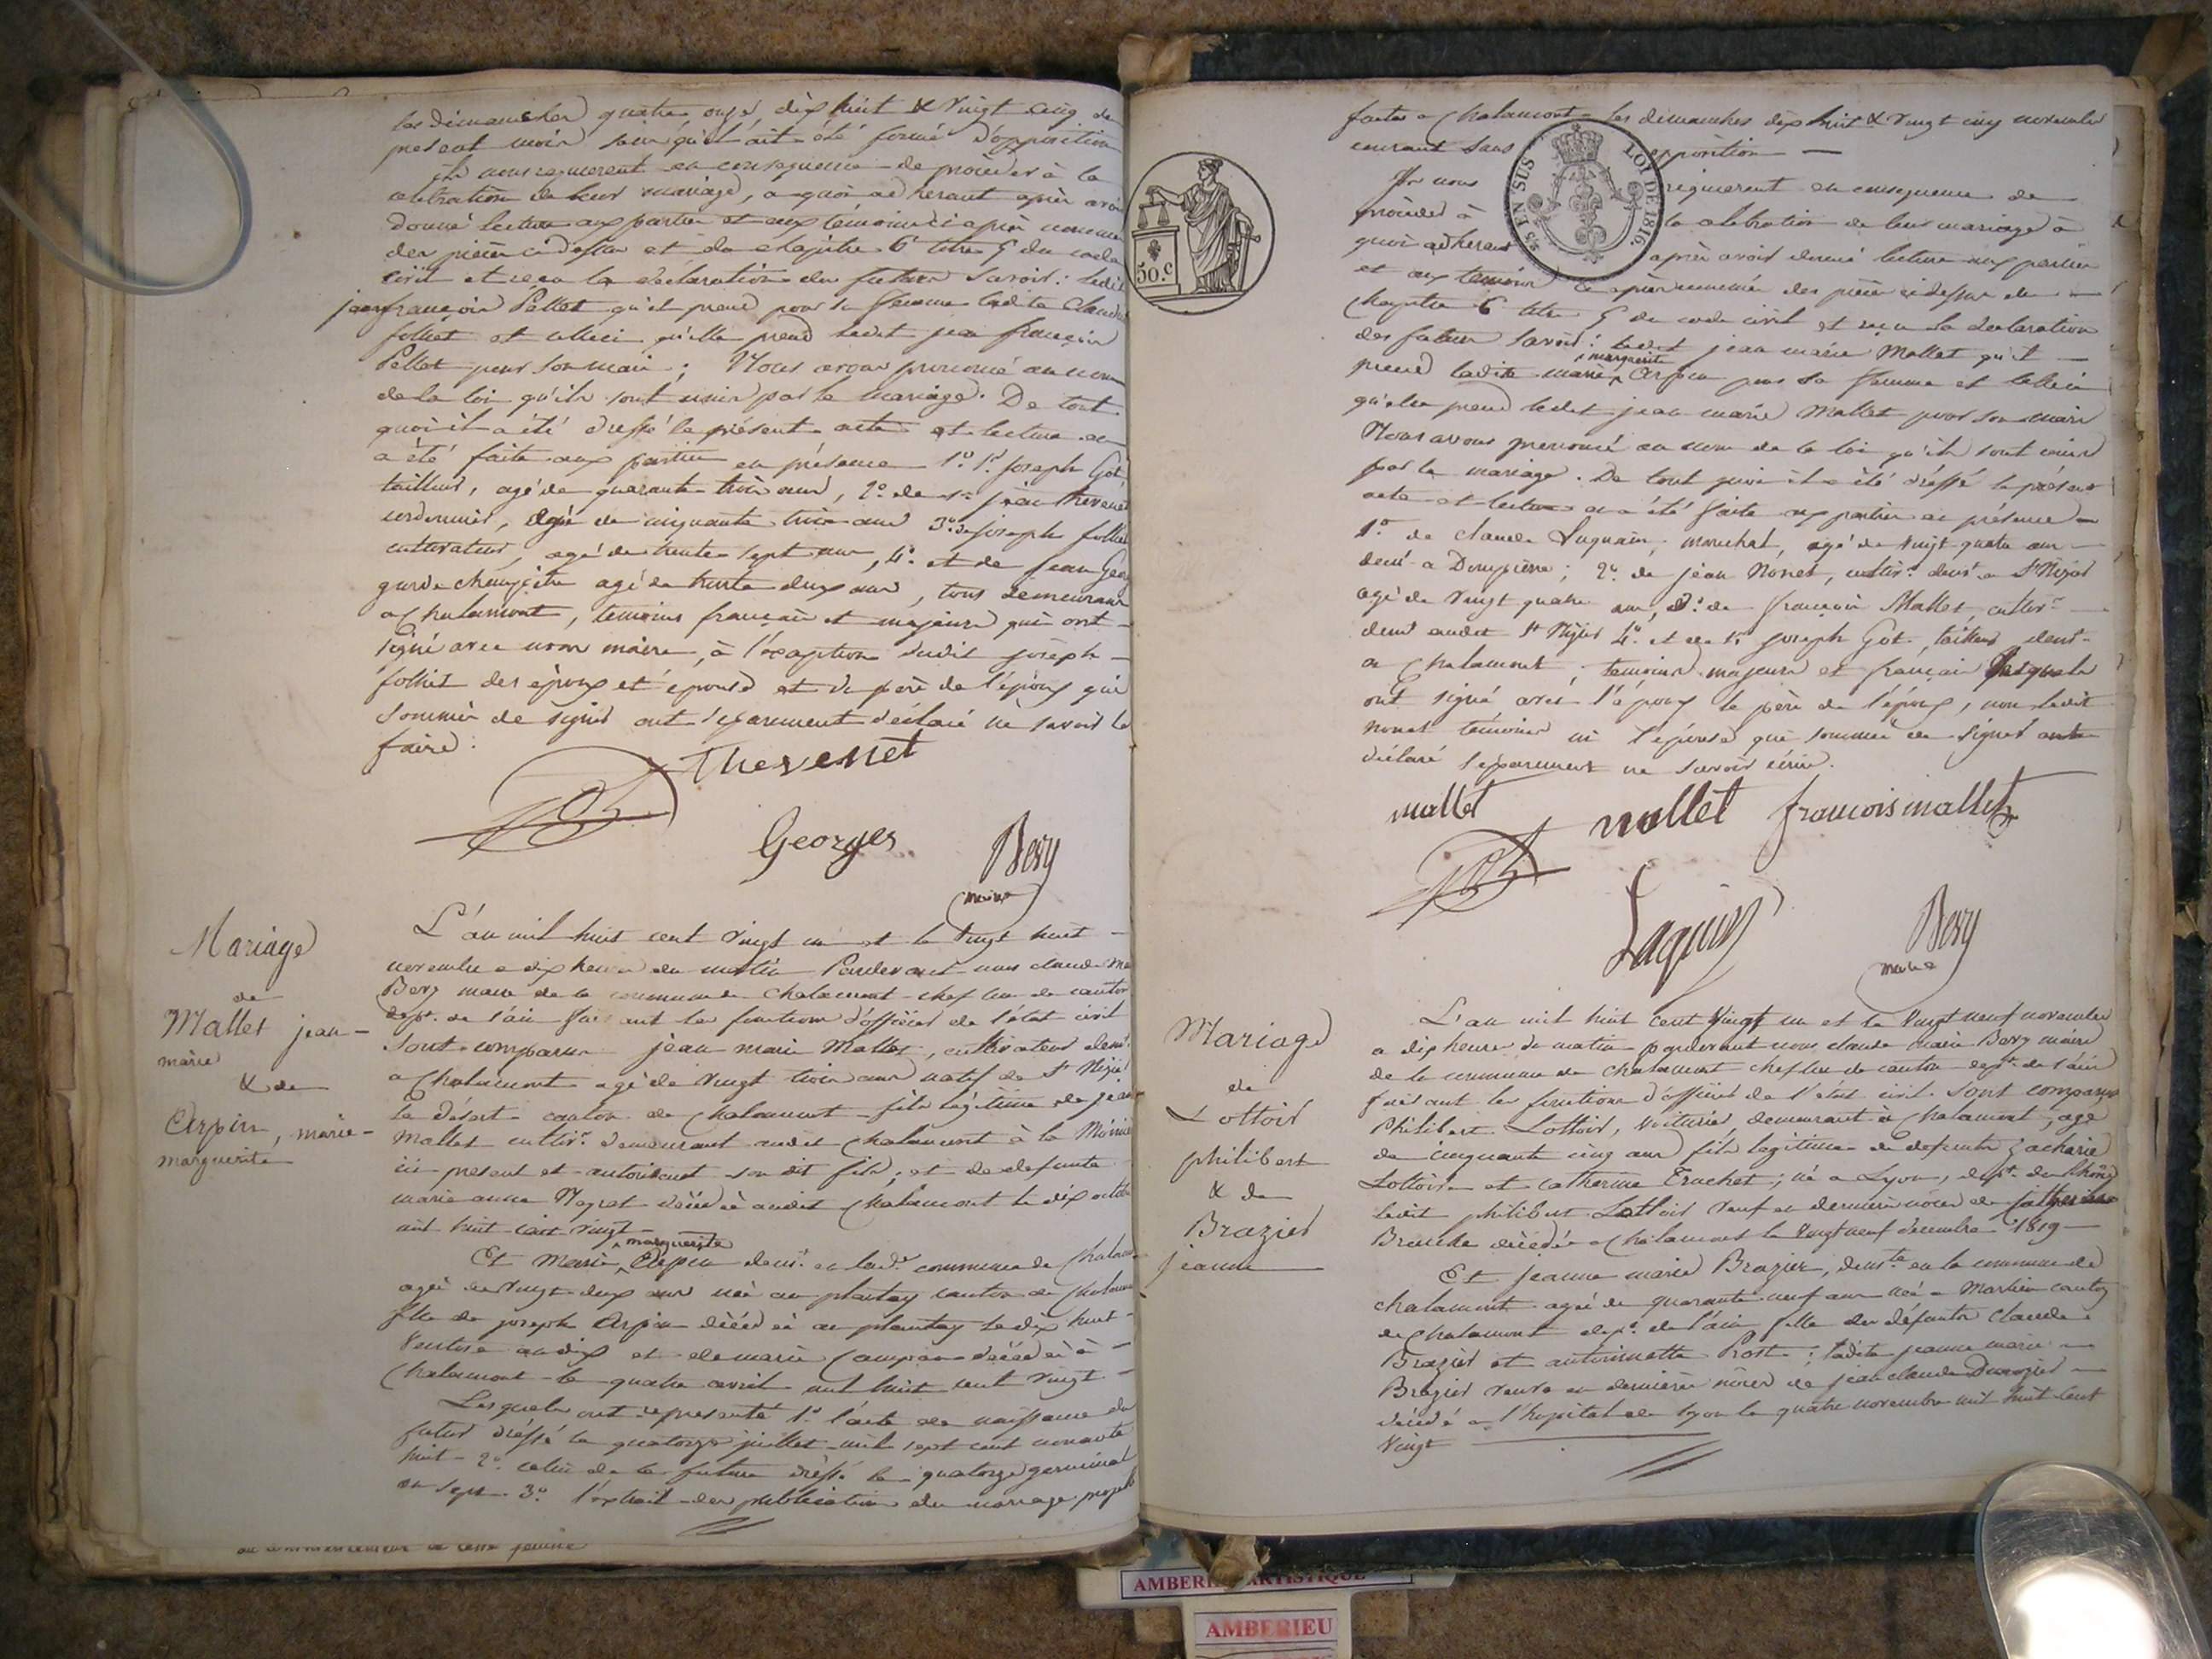 les dimanches quatre, onze, dix huit & vingt cinq du
present mois sans qu'il ait été formé d'opposition
Ils nous requierent en consequence de procéder à la
celebration de leur mariage, a quoi adherant après avoir
donné lecture aux parties et aux témoins ci après nommés
des pièces ci dessus et du chapitre 6 titre 5 du code
civil et reçu la déclaration des futurs savoir: ledit
jean françois Pellet qu'il prend pour sa femme ladite Claudine
follict et celleci qu'elle prend ledit jean françois
Pellet pour son mari; Nous avons prononcé au nom
de la loi qu'ils sont unis par le mariage. De tout
quoi il a été dressé le présent acte et lecture en
a été faite aux parties en présence 1º Sr. joseph Got
tailleur, agé de quarante trois ans, 2º de sr jean thevenet
cordonnier, agé de cinquante trois ans 3º de joseph follict
cultivateur, agé de trente sept ans, 4º et de jean Georges
garde champêtre agé de trente deux ans, tous demeurans
a Chalamont, temoins français et majeurs qui ont
signé avec nous maire, à l'exception dudit joseph
follict des époux et épouse et du père de l'époux qui
sommés de signer ont séparement déclaré ne savoir le
faire.
Thevenet
Got
Georges
Bery
maire
Mariage
de
Mallet jean-
marie
& de
Arpin, marie-
marguerite
L'an mil huit cent vingt un et le vingt huit
novembre a dix heures du matin Pardevant nous claude marie
Bery maire de la commune de Chalamont chef lieu de canton
dept. de l'ain faisant les fonctions d'officier de l'état civil
Sont comparus jean marie Mallet, cultivateur demt.
a Chalamont agé de vingt trois ans natif de St Nizier
le désert canton de Chalamont fils légitime de jean
Mallet cultivr. demeurant audit Chalamont à la
ici present et autorisant son dit fils; et de defunte
marie anne décédée audit Chalamont le dix octobre
mil huit cent vingt
Et Marie marguerite Arpin demt. en lade. commune de Chalamont
agée de vingt deux ans née au plantay canton de Chalamont
fille de joseph Arpin décédé au plantay le dix huit
ventose an dix et de marie décédée à
Chalamont le quatre avril mil huit cent vingt
Lesquels ont représenté 1º l'acte de naissance du
futur dréssé le quatorze juillet mil sept cent nonante
huit 2º celui de la future dréssé le quatorze germinal
an sept 3º l'extrait des publications du mariage projeté
faites a Chalamont les dimanches dix huit & vingt cinq novembre
courant sans opposition
Ils nous requierent en consequence de
procéder à la celebration de leur mariage à
quoi adherant après avoir donné lecture aux parties
et aux temoins ci après nommés des pièces ci dessus du
chapitre 6 titre 5 du code civil et reçu la declaration
des futurs savoir: ledit jean marie Mallet qu'il
prend ladite marie marguerite Arpin pour sa femme et celleci
qu'elle prend ledit jean marie Mallet pour son mari
Nous avons prononcé au nom de la loi qu'ils sont unis
par le mariage. De tout quoi il a été dréssé le présent
acte et lecture en a été faite aux parties en présence
1º de claude Laquin, marechal, agé de vingt quatre ans
demt. a Dompierre; 2º de jean Nonet, cultivr. demt. a St Nizier
agé de vingt quatre ans, 3º de françois Mallet, cultivr.
demt. audit St Nizier 4º et de sr joseph Got, tailleur demt.
a Chalamont, temoins majeurs et français lesquels
ont signé avec l'époux le père de l'époux, non ledit
nonet témoins ni l'épouse qui sommés de signer ont
déclaré séparement ne savoir écrire.
mallet
mallet
francois mallet
Got
Laquin
Bery
maire
50.c
5/5 EN SUS
LOI DE 1816.
Mariage
de
Lottoir
philibert
& de
Brazier
jeanne
L'an mil huit cent vingt un et le vingt neuf novembre
a dix heures du matin pardevant nous claude marie Bery maire
de la commune de Chalamont chef lieu de canton dept. de l'ain
faisant les fonctions d'officier de l'état civil. Sont comparus
Philibert Lottoir, voiturier, demeurant à Chalamont, agé
de cinquante cinq ans fils legitime de defunts zacharie
Lottoir et catherine Truchet; né a Lyon, dept. du Rhône
ledit philibert Lottoir veuf en dernieres nôces de Catherine
décédée a Chalamont le vingt neuf decembre 1819
Et jeanne marie Brazier, demte. en la commune de
chalamont agée de quarante neuf ans née a Marlieu canton
de Chalamont dept. de l'ain fille des défunts Claude
Brazier et antoinette Prost; ladite jeanne marie
Brazier veuve en dernières nôces de jean claude
décédé a l'hopital de lyon le quatre novembre mil huit cent
vingt
AMBERIEU ARTISTIQUE
AMBERIEU